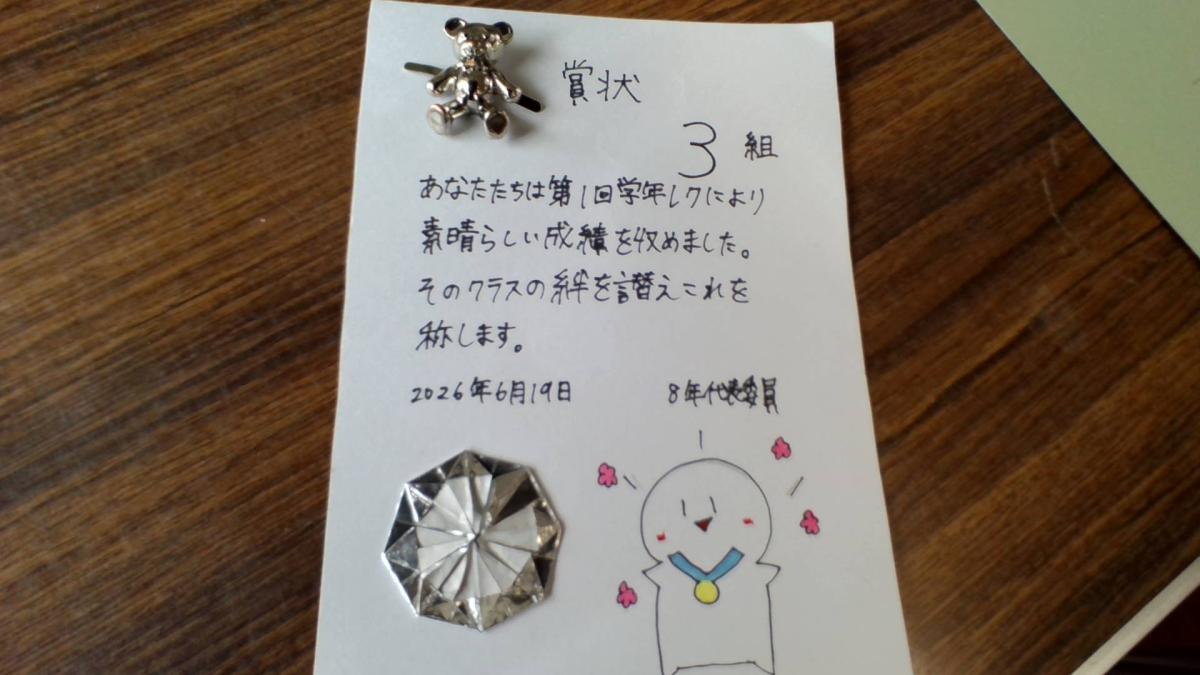 賞状
3組
あなたたちは第1回学年レクにより
素晴らしい成績を収めました。
そのクラスの絆を讃えこれを
称します。
2026年6月19日
8年代表委員